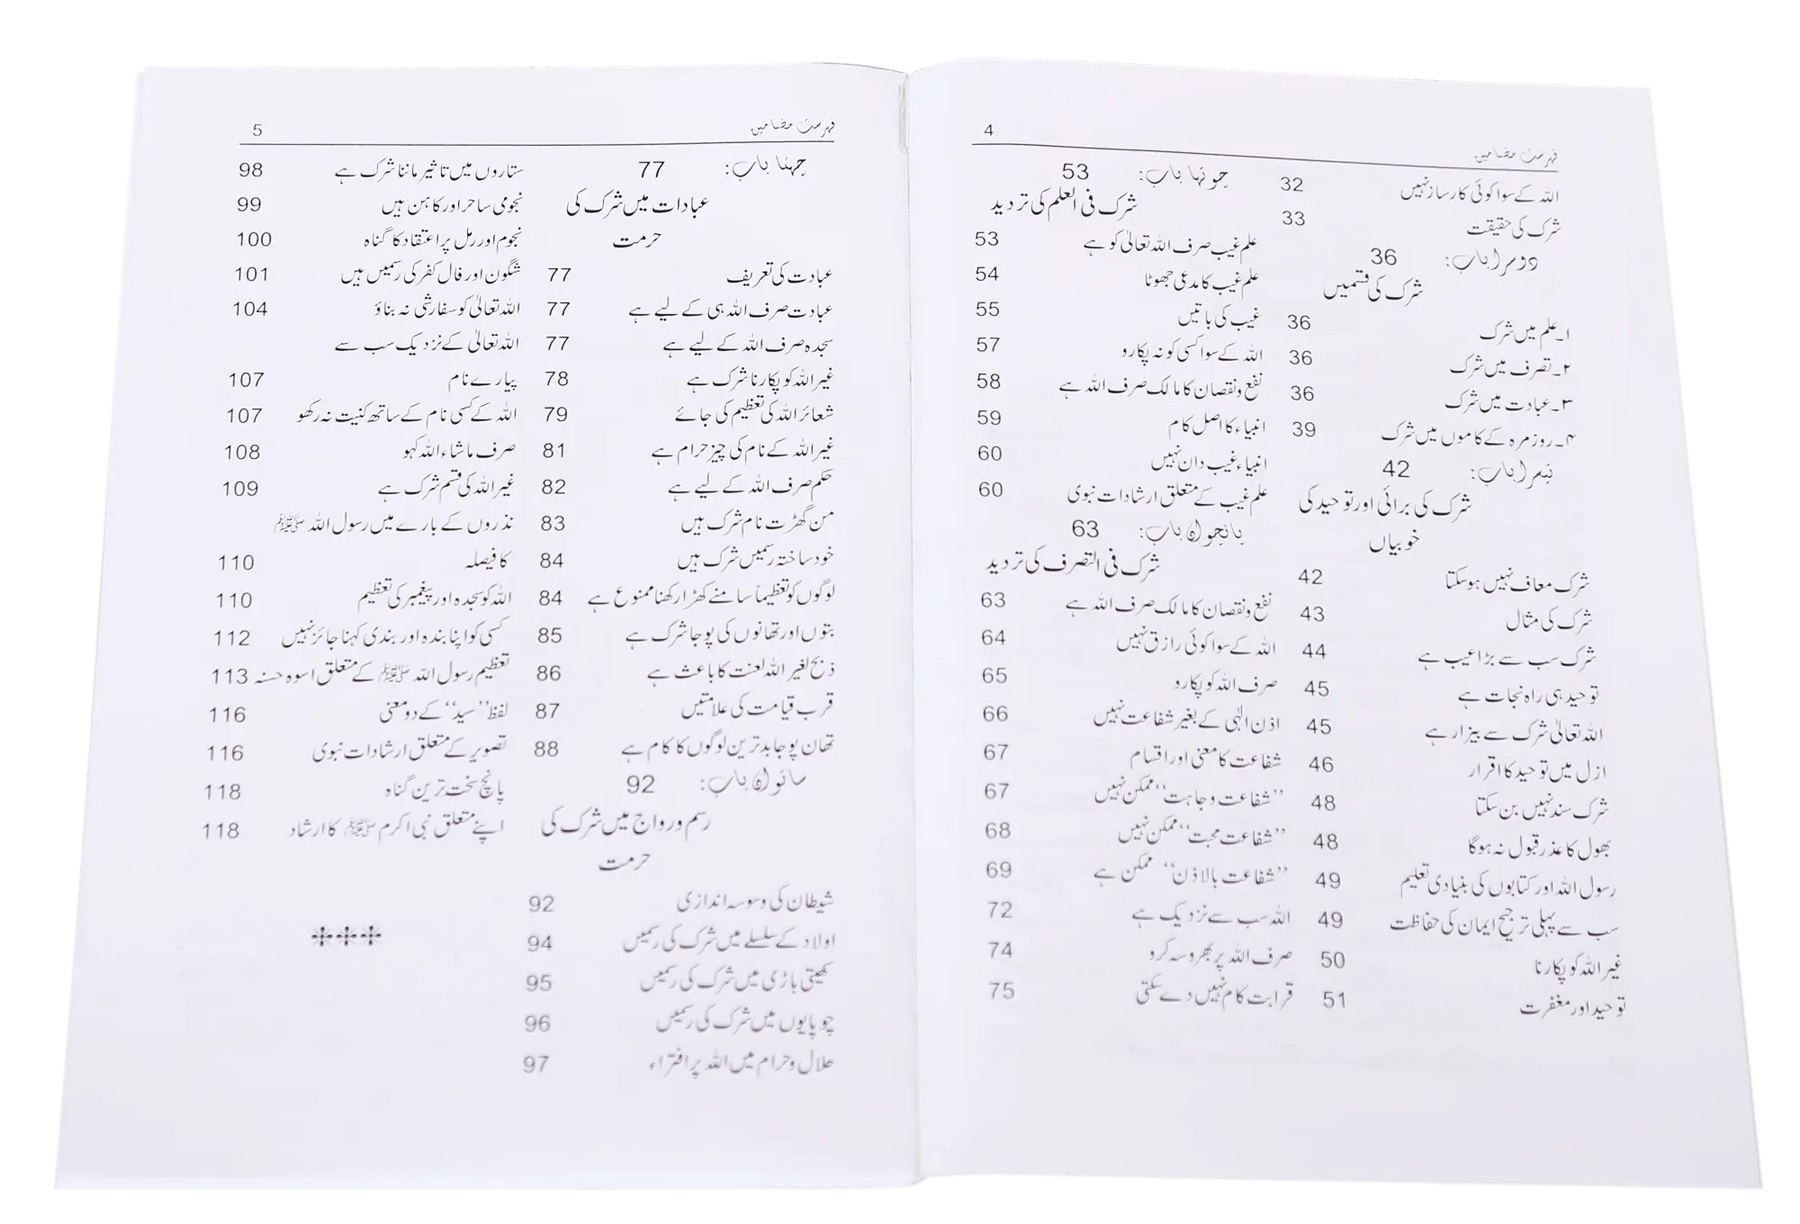 4 فہرست مضامین
اللہ کے سوا کوئی کارساز نہیں 32
شرک کی حقیقت 33
دوسرا باب: 36
شرک کی قسمیں
۱۔علم میں شرک 36
۲۔تصرف میں شرک 36
۳۔عبادت میں شرک 36
۴۔روزمرہ کے کاموں میں شرک 39
تیسرا باب: 42
شرک کی برائی اور توحید کی
خوبیاں
شرک معاف نہیں ہوسکتا 42
شرک کی مثال 43
شرک سب سے بڑا عیب ہے 44
توحید ہی راہ نجات ہے 45
اللہ تعالیٰ شرک سے بیزار ہے 45
ازل میں توحید کا اقرار 46
شرک سند نہیں بن سکتا 48
بھول کا عذر قبول نہ ہوگا 48
رسول اللہ اور کتابوں کی بنیادی تعلیم 49
سب سے پہلی ترجیح ایمان کی حفاظت 49
غیر اللہ کو پکارنا 50
توحید اور مغفرت 51
چوتھا باب: 53
شرک فی العلم کی تردید
علم غیب صرف اللہ تعالیٰ کو ہے 53
علم غیب کا مدعی جھوٹا 54
غیب کی باتیں 55
اللہ کے سوا کسی کو نہ پکارو 57
نفع و نقصان کا مالک صرف اللہ ہے 58
انبیاء کا اصل کام 59
انبیاء غیب دان نہیں 60
علم غیب کے متعلق ارشادات نبوی 60
پانچواں باب: 63
شرک فی التصرف کی تردید
نفع و نقصان کا مالک صرف اللہ ہے 63
اللہ کے سوا کوئی رازق نہیں 64
صرف اللہ کو پکارو 65
اذن الٰہی کے بغیر شفاعت نہیں 66
شفاعت کا معنی اور اقسام 67
’’شفاعت وجاہت‘‘ ممکن نہیں 67
’’شفاعت محبت‘‘ ممکن نہیں 68
’’شفاعت بالاذن‘‘ ممکن ہے 69
اللہ سب سے نزدیک ہے 72
صرف اللہ پر بھروسہ کرو 74
قرابت کام نہیں دے سکتی 75
5 فہرست مضامین
چھٹا باب: 77
عبادات میں شرک کی
حرمت
عبادت کی تعریف 77
عبادت صرف اللہ ہی کے لیے ہے 77
سجدہ صرف اللہ کے لیے ہے 77
غیر اللہ کو پکارنا شرک ہے 78
شعائر اللہ کی تعظیم کی جائے 79
غیر اللہ کے نام کی چیز حرام ہے 81
حکم صرف اللہ کے لیے ہے 82
من گھڑت نام شرک ہیں 83
خود ساختہ رسمیں شرک ہیں 84
لوگوں کو تعظیماً سامنے کھڑا رکھنا ممنوع ہے 84
بتوں اور تھانوں کی پوجا شرک ہے 85
ذبح لغیر اللہ لعنت کا باعث ہے 86
قرب قیامت کی علامتیں 87
تھان پوجا بدترین لوگوں کا کام ہے 88
ساتواں باب: 92
رسم و رواج میں شرک کی
حرمت
شیطان کی وسوسہ اندازی 92
اولاد کے سلسلے میں شرک کی رسمیں 94
کھیتی باڑی میں شرک کی رسمیں 95
چوپایوں میں شرک کی رسمیں 96
حلال و حرام میں اللہ پر افتراء 97
ستاروں میں تاثیر ماننا شرک ہے 98
نجومی ساحر اور کاہن ہیں 99
نجوم اور رمل پر اعتقاد کا گناہ 100
شگون اور فال کفر کی رسمیں ہیں 101
اللہ تعالیٰ کو سفارشی نہ بناؤ 104
اللہ تعالیٰ کے نزدیک سب سے
پیارے نام 107
اللہ کے کسی نام کے ساتھ کنیت نہ رکھو 107
صرف ماشاء اللہ کہو 108
غیر اللہ کی قسم شرک ہے 109
نذروں کے بارے میں رسول اللہ ﷺ
کا فیصلہ 110
اللہ کو سجدہ اور پیغمبر کی تعظیم 110
کسی کو اپنا بندہ اور بندی کہنا جائز نہیں 112
تعظیم رسول اللہ ﷺ کے متعلق اسوہ حسنہ 113
لفظ ’’سید‘‘ کے دو معنی 116
تصویر کے متعلق ارشادات نبوی 116
پانچ سخت ترین گناہ 118
اپنے متعلق نبی اکرم ﷺ کا ارشاد 118